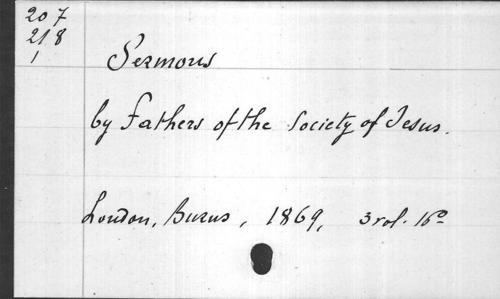 207
218
1
Sermons
by Fathers of the Society of Jesus.
London, Burns, 1869, 3 vol. 16°